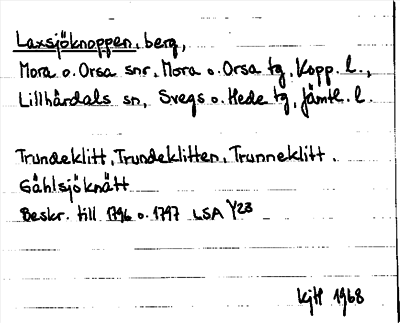 Laxsjöknoppen, berg,
Mora o. Orsa snr, Mora o. Orsa tg, Kopp. l.,
Lillhärdals sn, Svegs o. Hede tg, Jämtl. l.
Trundeklitt, Trundeklitten, Trunneklitt.
Gåhlsjöknätt
Beskr. till 1796 o. 1797 LSA Y23
KjH 1968